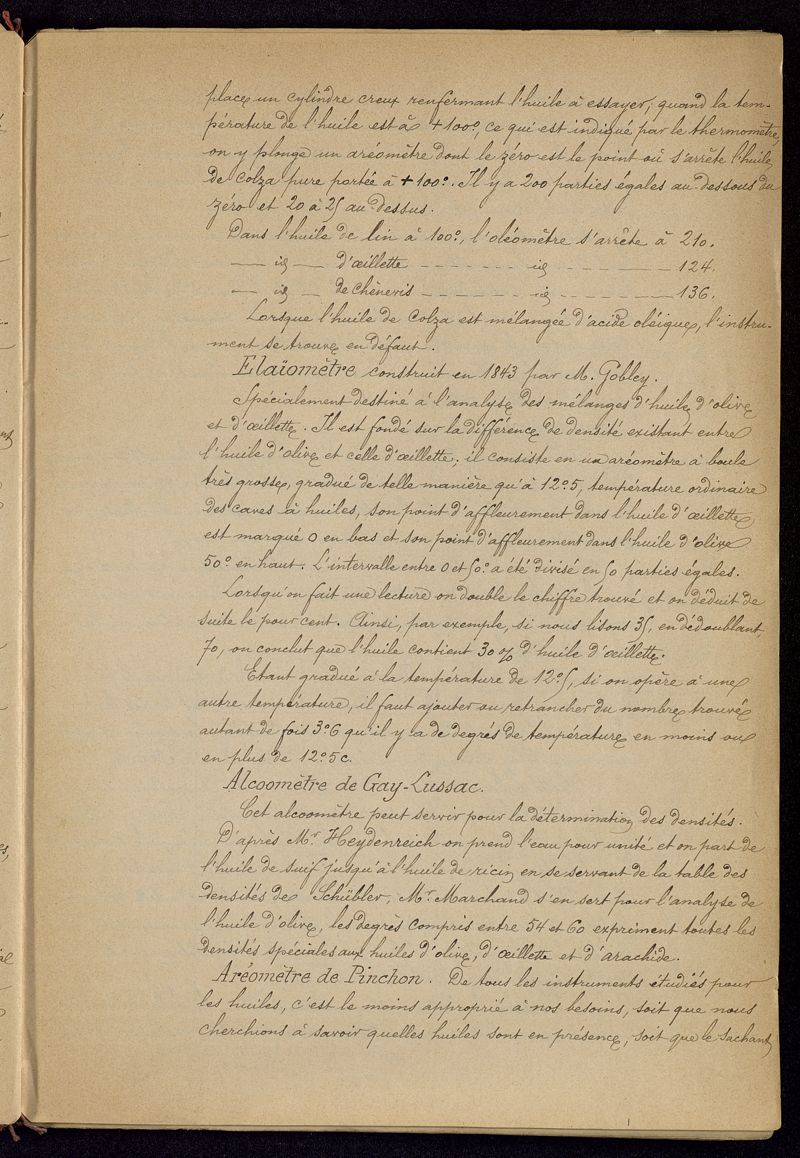 place un cylindre creux renfermant l'huile à essayer; quand la tem-
pérature de l'huile est à +100°, ce qui est indiqué par le thermomètre,
on y plonge un aréomètre dont le zéro est le point où s'arrête l'huile
de Colza pure portée à +100°. Il y a 200 parties égales au-dessous du
zéro et 20 à 25 au dessus.
Dans l'huile de lin à 100°, l'oléomètre s'arrête à 210.
— id — d'œillette - - - - - - - id - - - - - — 124.
— id — de Chènevis - - - - - - - id - - - - - — 136.
Lorsque l'huile de Colza est mélangée d'acide oléique, l'instru-
ment se trouve en défaut.
Elaïomètre construit en 1843 par M. Gobley.
Spécialement destiné à l'analyse des mélanges d'huile d'olive
et d'œillette. Il est fondé sur la différence de densité existant entre
l'huile d'olive et celle d'œillette; il consiste en un aréomètre à boule
très grosse, gradué de telle manière qu'à 12°5, température ordinaire
des caves à huiles, son point d'affleurement dans l'huile d'œillette
est marqué 0 en bas et son point d'affleurement dans l'huile d'olive
50° en haut. L'intervalle entre 0 et 50° a été divisé en 50 parties égales.
Lorsqu'on fait une lecture on double le chiffre trouvé et on déduit de
suite le pour cent. Ainsi, par exemple, si nous lisons 35, en dédoublant,
70, on conclut que l'huile contient 30 % d'huile d'œillette.
Etant gradué à la température de 12°5, si on opère à une
autre température, il faut ajouter ou retrancher du nombre trouvé
autant de fois 3°6 qu'il y a de degrés de température en moins ou
en plus de 12°5c.
Alcoomètre de Gay-Lussac.
Cet alcoomètre peut servir pour la détermination des densités.
D'après Mr Heydenreich on prend l'eau pour unité et on part de
l'huile de suif jusqu'à l'huile de ricin en se servant de la table des
densités de Schübler, Mr Marchand s'en sert pour l'analyse de
l'huile d'olive, les degrés compris entre 54 et 60 expriment toutes les
densités spéciales aux huiles d'olive, d'œillette et d'arachide.
Aréomètre de Pinchon. De tous les instruments étudiés pour
les huiles, c'est le moins approprié à nos besoins, soit que nous
cherchions à savoir quelles huiles sont en présence, soit que le sachant